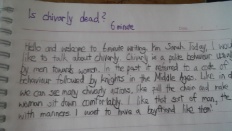 Is chivarly dead?
6 minute
Hello and welcome to 6 minute writing. I'm Sarah Today, I would
like to talk about chivarly. Chivarly is a polite behaviour usually
by men towards women. In the past it referred to a code of
behaviour followed by knights in the Middle Ages. Like in
we can see many chivarly actions. Like pull the chair and make
woman sit down comfortably. I like that sort of man, the
with manners I want to have a boyfriend like them!